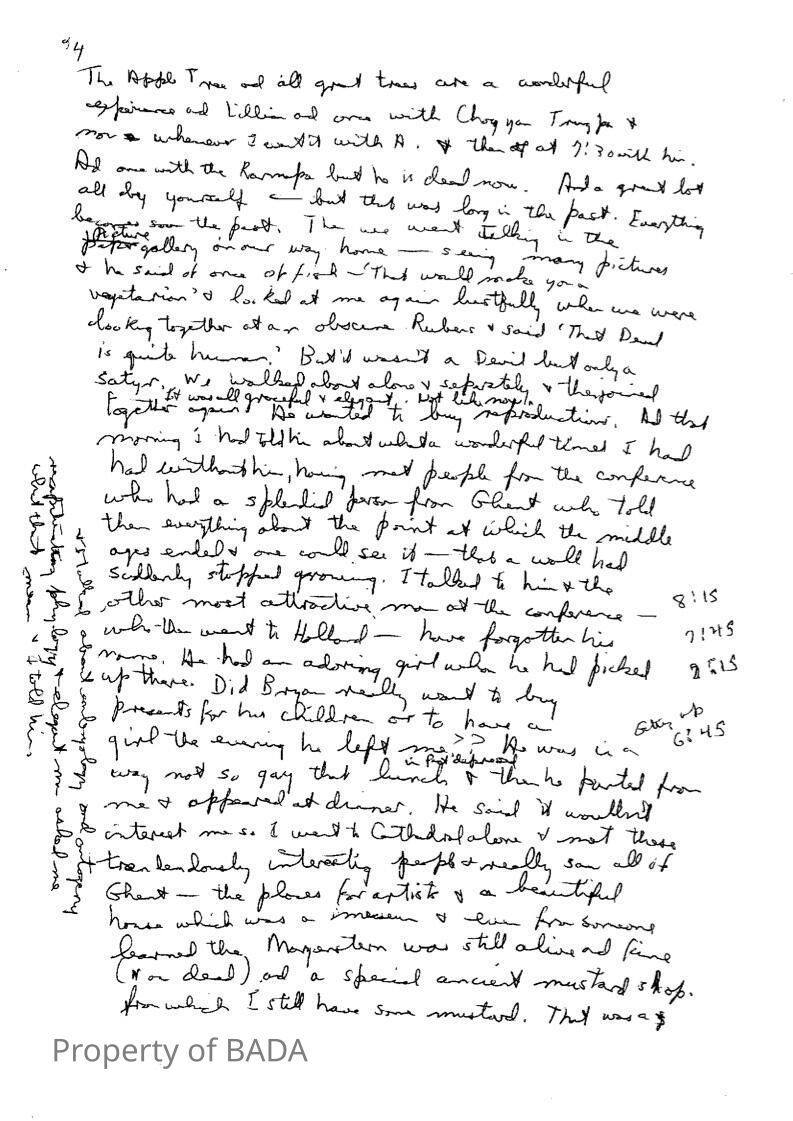 94
The Apple Tree and all great trees are a wonderful
experience and Lillian and once with Chogyam Trungpa &
now whenever I want it with A. & then at 7:30 with him.
And once with the Karmapa but he is dead now. And a great lot
all by yourself — but that was long in the past. Everything
becomes soon the past. The we went talking in the
Picture gallery on our way home — seeing many pictures
& he said of one of fish — 'That would make you a
vegetarian' & looked at me again lustfully when we were
looking together at an obscene Rubens & said 'That Devil
is quite human.' But it wasn't a Devil but only a
satyr. We walked about alone & separately & then joined
It was all graceful & elegant. Not like now!
together again. He wanted to buy reproductions. And that
morning I had told him about what a wonderful times I had
had without him, having met people from the conference
who had a splendid person from Ghent who told
them everything about the point at which the middle
ages ended & one could see it — that a wall had
suddenly stopped growing. I talked to him & the
other most attractive man at the conference —
who then went to Holland — have forgotten his
name. He had an adoring girl whom he had picked
up there. Did Bryan really want to buy
presents for his children or to have a
girl the evening he left me?? He was in a
in fact depressed
way not so gay that lunch & then he parted from
me & appeared at dinner. He said it wouldn't
interest me so I went to Cathedral alone & met these
tremendously interesting people & really saw all of
Ghent — the places for artists & a beautiful
house which was a museum & even from someone
learned the Morgenstern was still alive and fine
(not dead) and a special ancient mustard shop.
from which I still have some mustard. That was a
8:15
7:45
8:15
Get up
6:45
& talked about embryology and ontogeny
recapitulating phylogeny & elegant man asked me
what that mean & I told him.
Property of BADA